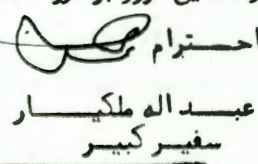 احترام
عبد اله ملکیار
سفیر کبیر